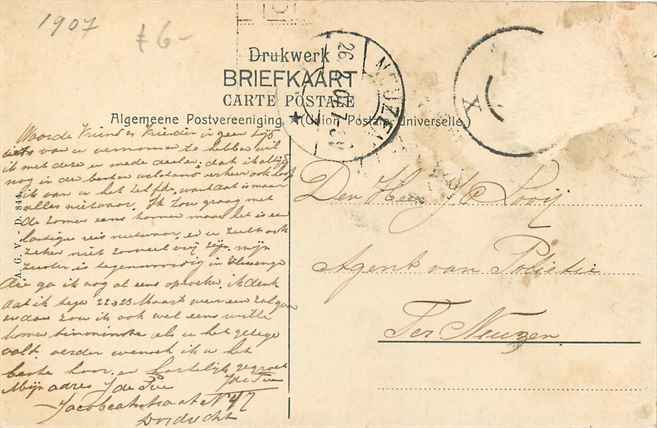 1907
£6-
Drukwerk
BRIEFKAART
CARTE POSTALE
Algemeene Postvereeniging (Union Postale Universelle)
NEUZEN
26. 07
X
Waarde Vriend en Vriendin in geen tijd
iets van u vernomen te hebben wil
ik met deze u mede deelen dat ik altijd
nog in den besten welstand verkeer ook hoop
ik van u het zelfde, want dat is maar
alles nietwaar. Ik zou graag met
de zomer eens komen maar het is een
lastige reis nietwaar, en u zult ook
zeker niet zooveel vrij zijn. mijn
zuster is tegenwoordig in
die ga ik nog al eens opzoeken, ik denk
dat ik tegen 22 a 23 Maart weer een
en dan zou ik ook wel eens willen
komen als u het gelegen
valt verder wensch ik u het
beste hoor, en hartelijk gegroet
Mijn adres J de J de
Jacobastraat N 47
Dordrecht
A. G. V. D. 84
Den Heer J C Kooij
Agent van Politie
Ter Neuzen